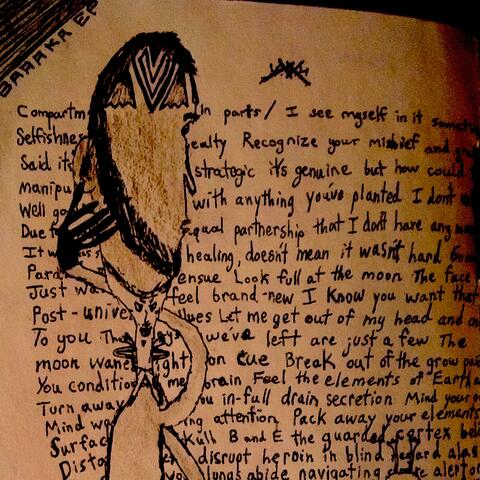 BARAKA EP
Compartm In parts/ I see myself in it
Selfishnes ealty Recognize your mishief and
Said its strategic it's genuine but how could
manipu with anything you've planted I dont
Well go equal partnership that I don't have any
Due
It w healing, doesn't mean it wasn't hard
Para ensue Look full at the moon The face
Just wa feel brand-new I know you want that
Post-unive lues Let me get out of my head and
To you The ys we've left are just a few The
moon wane ight on cue Break out of the grow
You condition me brain Feel the elements of Earth
Turn away ou in-full drain secretion Mind your
Mind wa ing attention Pack away your elements
Surfac kull B and E the guarded cortex
Dista disrupt heroin in blind regard alas
lungs abide navigating alert